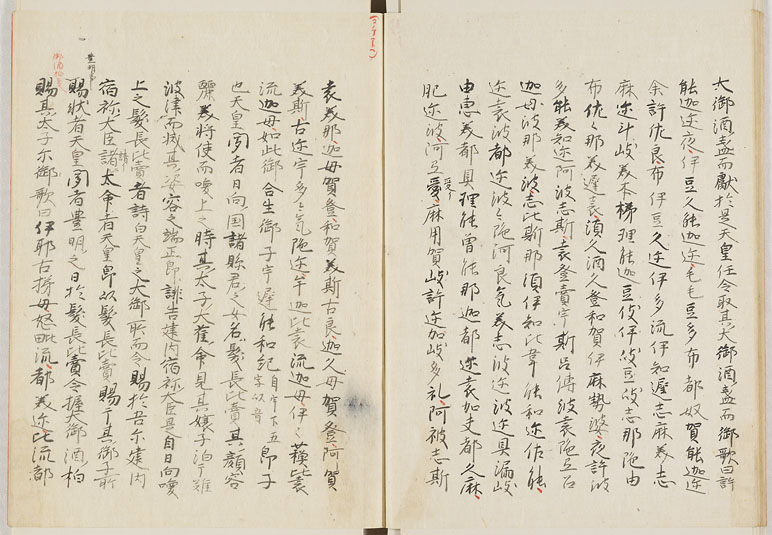 大御酒盞而獻於是天皇任令取其大御酒盞而御歌曰許
能迦迩夜伊豆久能迦迩毛毛豆多布都奴賀能迦迩
余許佐良布伊豆久迩伊多流伊知遲志麻美志
麻迩斗岐美本梯理能迦豆伎伊伎豆岐志那陁由
布佐々那美遲袁湏久酒久登和賀伊麻勢婆夜許波
多能美知迩阿波志斯袁登賣宇斯呂傳波袁陁弖呂
迦母波那美波志比斯那湏伊知比韋能和迩佐能
迩袁波都迩波々陁阿良氣美志波迩波迩具漏岐
由惠美都具理能曽能那迦都迩袁加夫都久麻
肥迩波阿弖愛麻用賀岐許迩加岐多礼阿被志斯
袁美那迦母賀登和賀美斯古良迦久母賀登阿賀
美斯古迩宇多々氣陁迩牟迦比袁流迦母伊々蘓比袁
流迦母如此御合生御子宇遲能和紀自宇下五字以音郎子
也天皇聞看日向国諸縣君之女名髮長比賣其顔容
麗美將使而喚上之時其太子大雀命見其孃子泊于難
波津而感其姿容之端正即誂告建内宿祢大臣是自日向喚
上之髮長比賣者請白天皇之大御所而令賜於吾尓建内
宿祢大臣請太命者天皇即以髮長比賣賜于其御子所
賜状者天皇聞看豊明之日於髮長比賣令握大御酒柏
賜其太子尓御歌曰伊耶古拷母怒毗流都美迩比流都